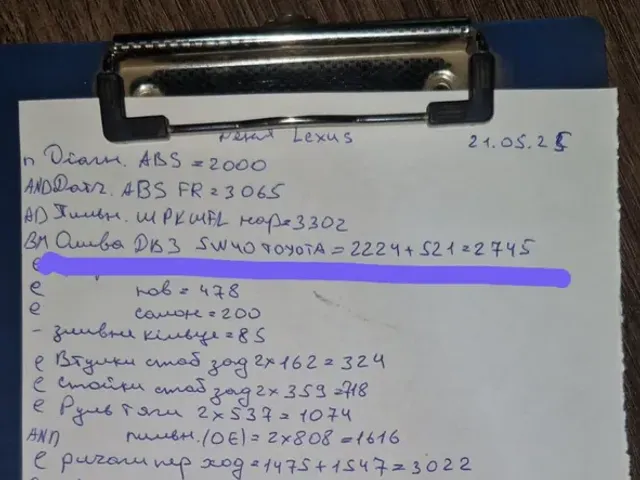 Lexus 21.05.25
п Діагн. ABS = 2000
AND Датч. ABS FR = 3065
AD Пильн. ШРКШFL нар = 3302
BM Олива ДВЗ 5W40 TOYOTA = 2224 + 521 = 2745
е
е пов = 478
е салон = 200
- зливне кільце = 85
е Втулки стаб зад 2x162 = 324
е Стойки стаб зад 2x359 = 718
е Руль тяги 2x537 = 1074
AND пильн. (OE) = 2x808 = 1616
е ричаги пер ход = 1475 + 1547 = 3022